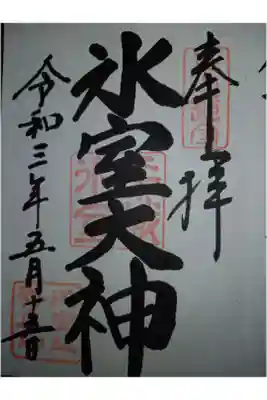 奉拝
氷室大神
令和三年五月十五日